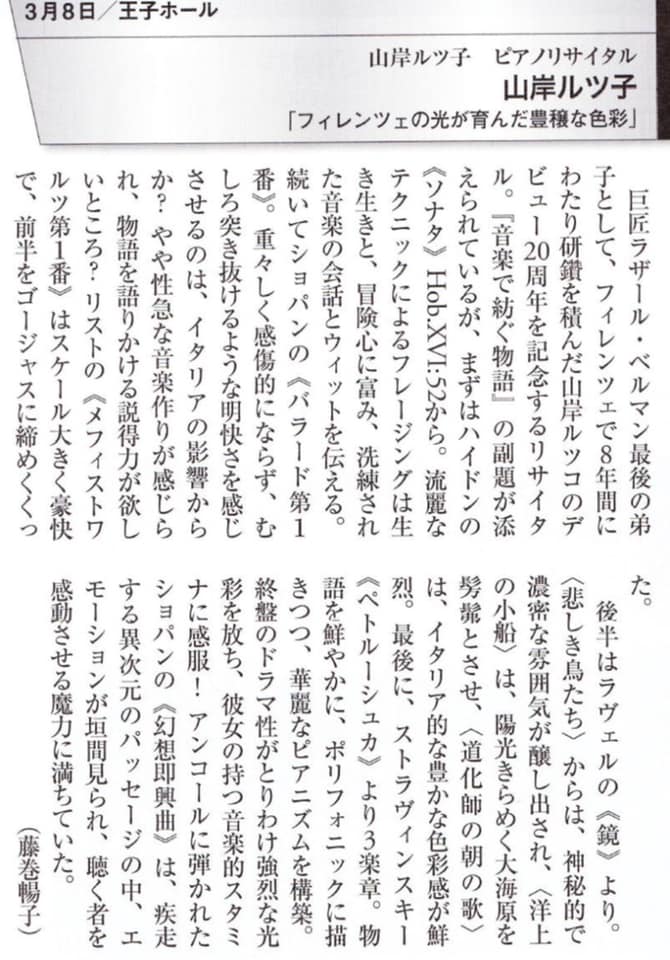 3月8日／王子ホール
山岸ルツ子　ピアノリサイタル
山岸ルツ子
「フィレンツェの光が育んだ豊穣な色彩」
　巨匠ラザール・ベルマン最後の弟
子として、フィレンツェで8年間に
わたり研鑽を積んだ山岸ルツコのデ
ビュー20周年を記念するリサイタ
ル。『音楽で紡ぐ物語』の副題が添
えられているが、まずはハイドンの
《ソナタ》Hob.XVI:52から。流麗な
テクニックによるフレージングは生
き生きと、冒険心に富み、洗練され
た音楽の会話とウィットを伝える。
続いてショパンの《バラード第1
番》。重々しく感傷的にならず、む
しろ突き抜けるような明快さを感じ
させるのは、イタリアの影響から
か？ やや性急な音楽作りが感じら
れ、物語を語りかける説得力が欲し
いところ？ リストの《メフィストワ
ルツ第1番》はスケール大きく豪快
で、前半をゴージャスに締めくくっ
た。
　後半はラヴェルの《鏡》より。
〈悲しき鳥たち〉からは、神秘的で
濃密な雰囲気が醸し出され、〈洋上
の小船〉は、陽光きらめく大海原を
髣髴とさせ、〈道化師の朝の歌〉
は、イタリア的な豊かな色彩感が鮮
烈。最後に、ストラヴィンスキー
《ペトルーシュカ》より3楽章。物
語を鮮やかに、ポリフォニックに描
きつつ、華麗なピアニズムを構築。
終盤のドラマ性がとりわけ強烈な光
彩を放ち、彼女の持つ音楽的スタミ
ナに感服！ アンコールに弾かれた
ショパンの《幻想即興曲》は、疾走
する異次元のパッセージの中、エ
モーションが垣間見られ、聴く者を
感動させる魔力に満ちていた。
（藤巻暢子）